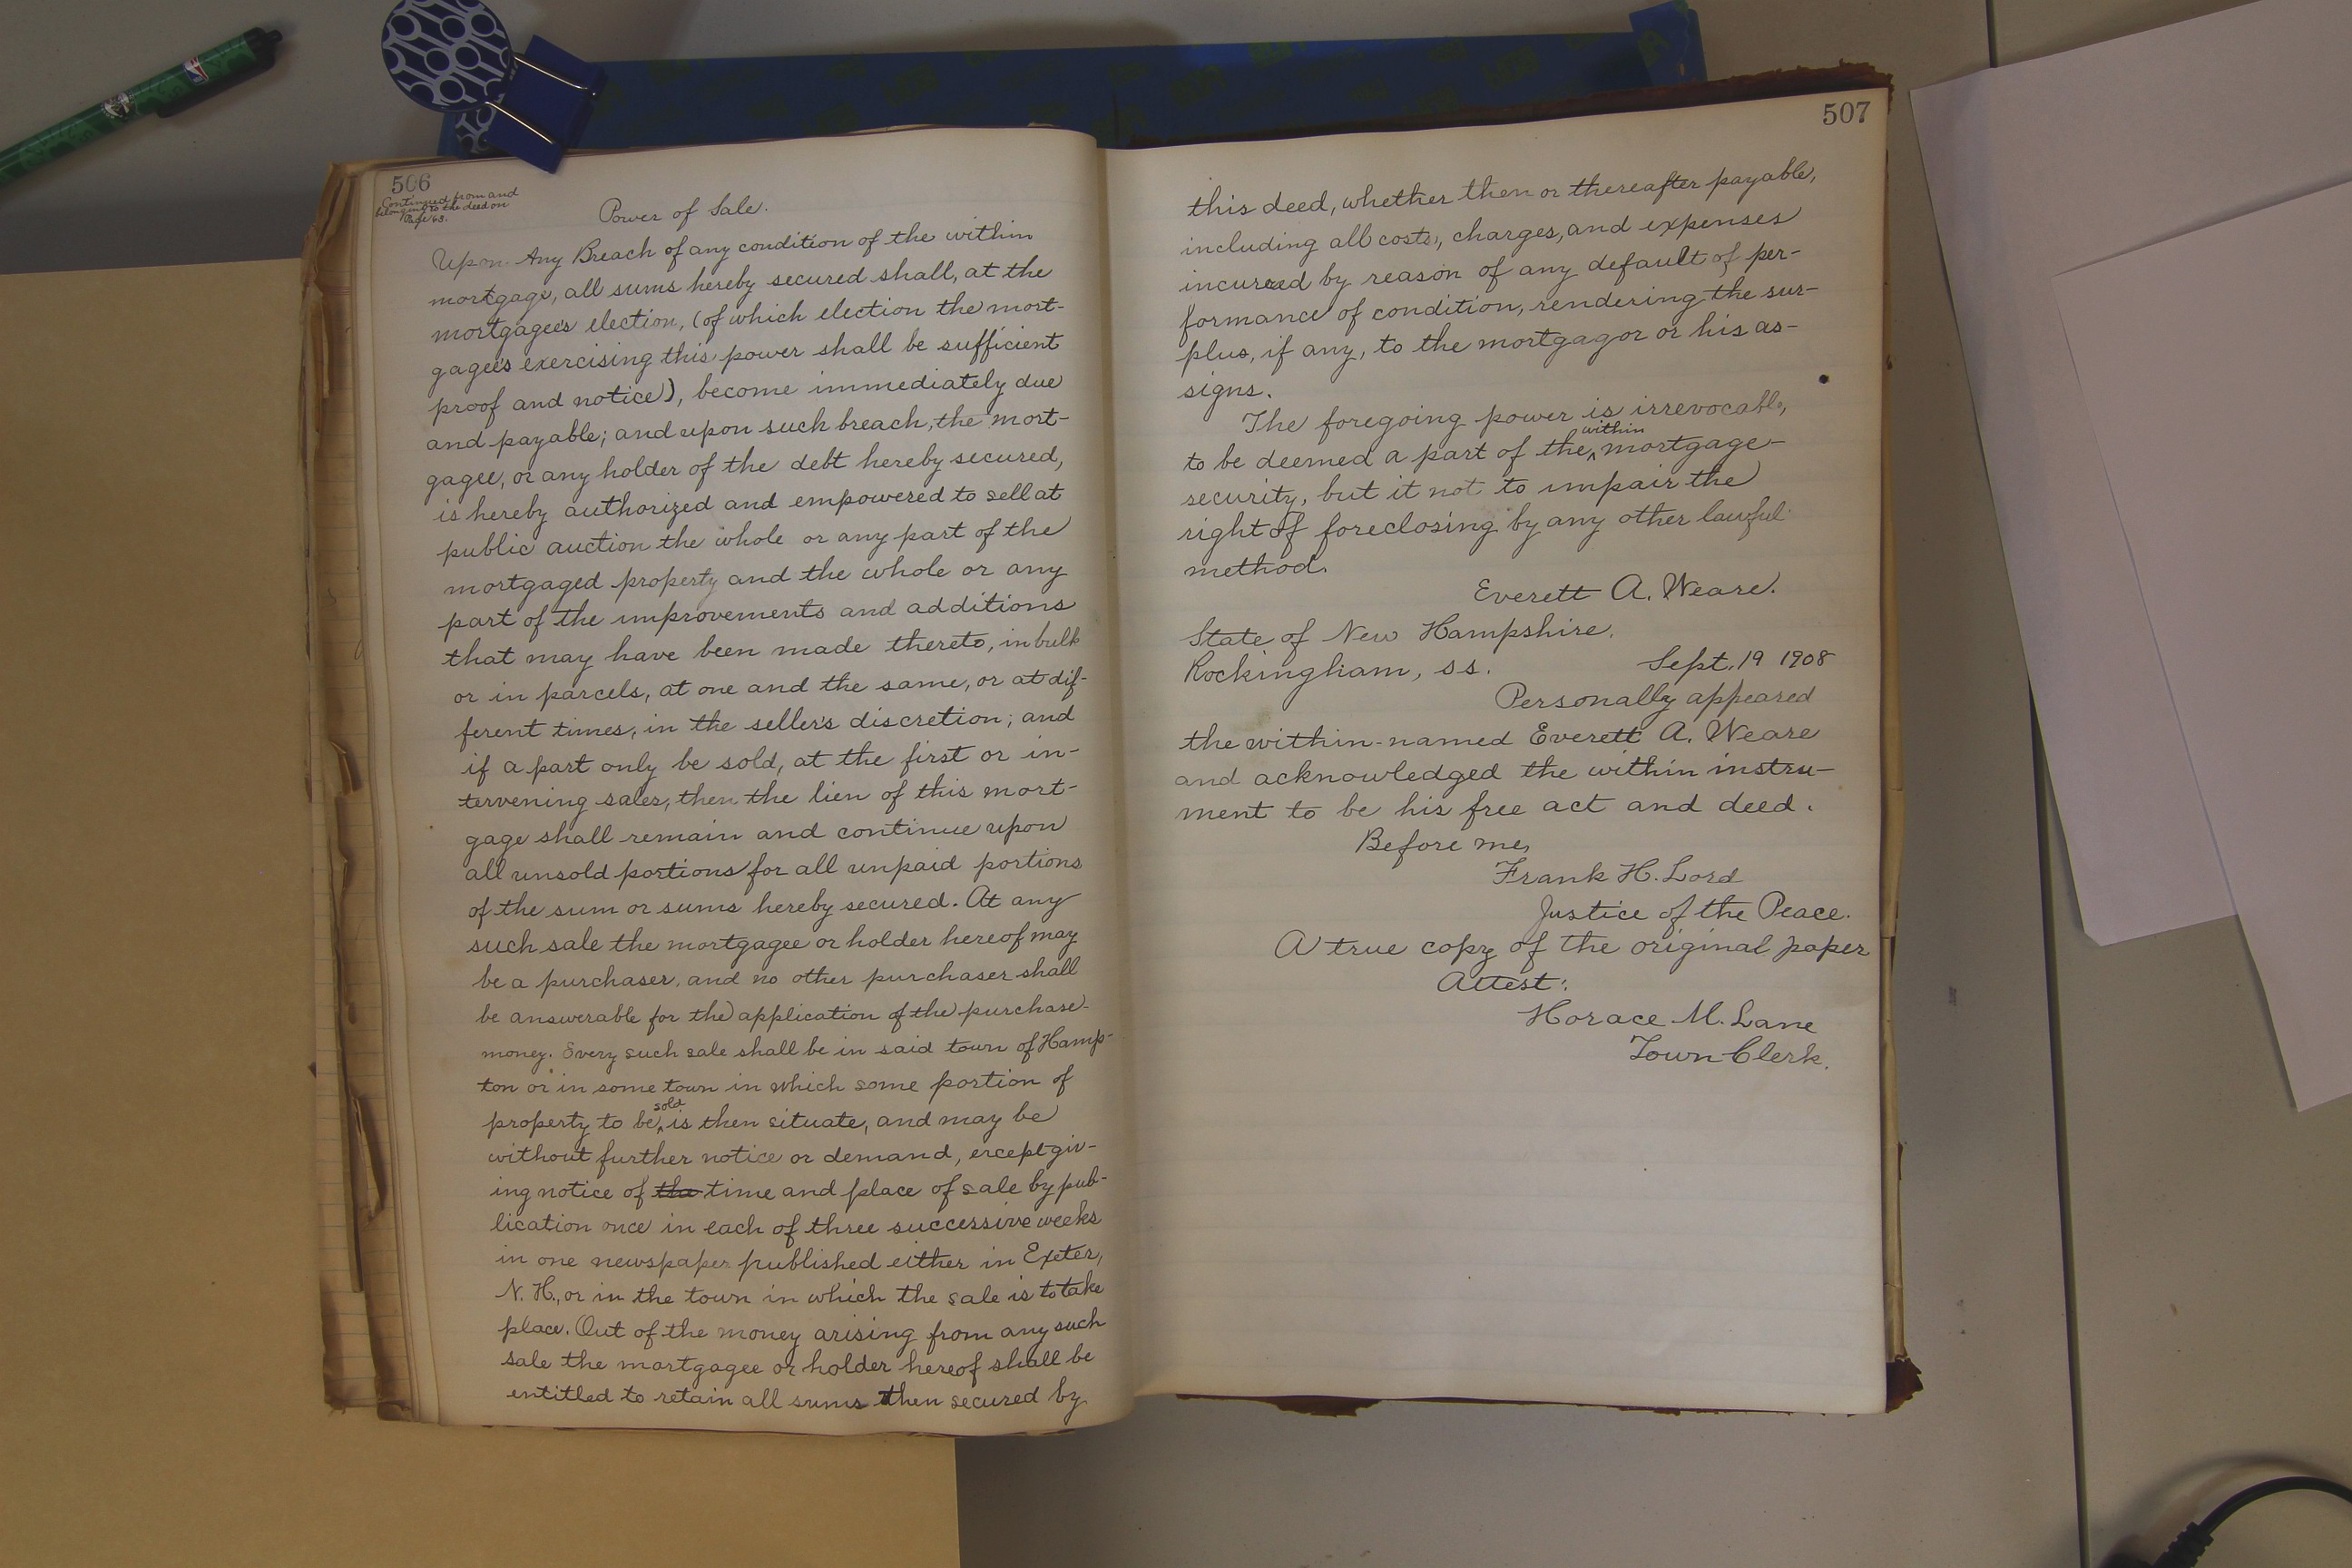 506
Continued from and
belonging to the deed on
Page 63.
Power of Sale.
Upon Any Breach of any condition of the within
mortgage, all sums hereby secured shall, at the
mortgagee's election, (of which election the mort-
gagee's exercising this power shall be sufficient
proof and notice), become immediately due
and payable; and upon such breach, the mort-
gagee, or any holder of the debt hereby secured,
is hereby authorized and empowered to sell at
public auction the whole or any part of the
mortgaged property and the whole or any
part of the improvements and additions
that may have been made thereto, in bulk
or in parcels, at one and the same, or at dif-
ferent times, in the seller's discretion; and
if a part only be sold, at the first or in-
tervening sales, then the lien of this mort-
gage shall remain and continue upon
all unsold portions for all unpaid portions
of the sum or sums hereby secured. At any
such sale the mortgagee or holder hereof may
be a purchaser, and no other purchaser shall
be answerable for the application of the purchase-
money. Every such sale shall be in said town of Hamp-
ton or in some town in which some portion of
property to be sold is then situate, and may be
without further notice or demand, except giv-
ing notice of the time and place of sale by pub-
lication once in each of three successive weeks
in one newspaper published either in Exeter,
N. H., or in the town in which the sale is to take
place. Out of the money arising from any such
sale the mortgagee or holder hereof shall be
entitled to retain all sums then secured by
507
this deed, whether then or thereafter payable,
including all costs, charges, and expenses
incurred by reason of any default of per-
formance of condition, rendering the sur-
plus, if any, to the mortgagor or his as-
signs.
The foregoing power is irrevocable,
to be deemed a part of the within mortgage-
security, but it not to impair the
right of foreclosing by any other lawful
method.
Everett A. Weare.
State of New Hampshire.
Rockingham, ss. Sept. 19 1908
Personally appeared
the within-named Everett A. Weare
and acknowledged the within instru-
ment to be his free act and deed.
Before me,
Frank H. Lord
Justice of the Peace.
A true copy of the original paper
Attest:
Horace M. Lane
Town Clerk.